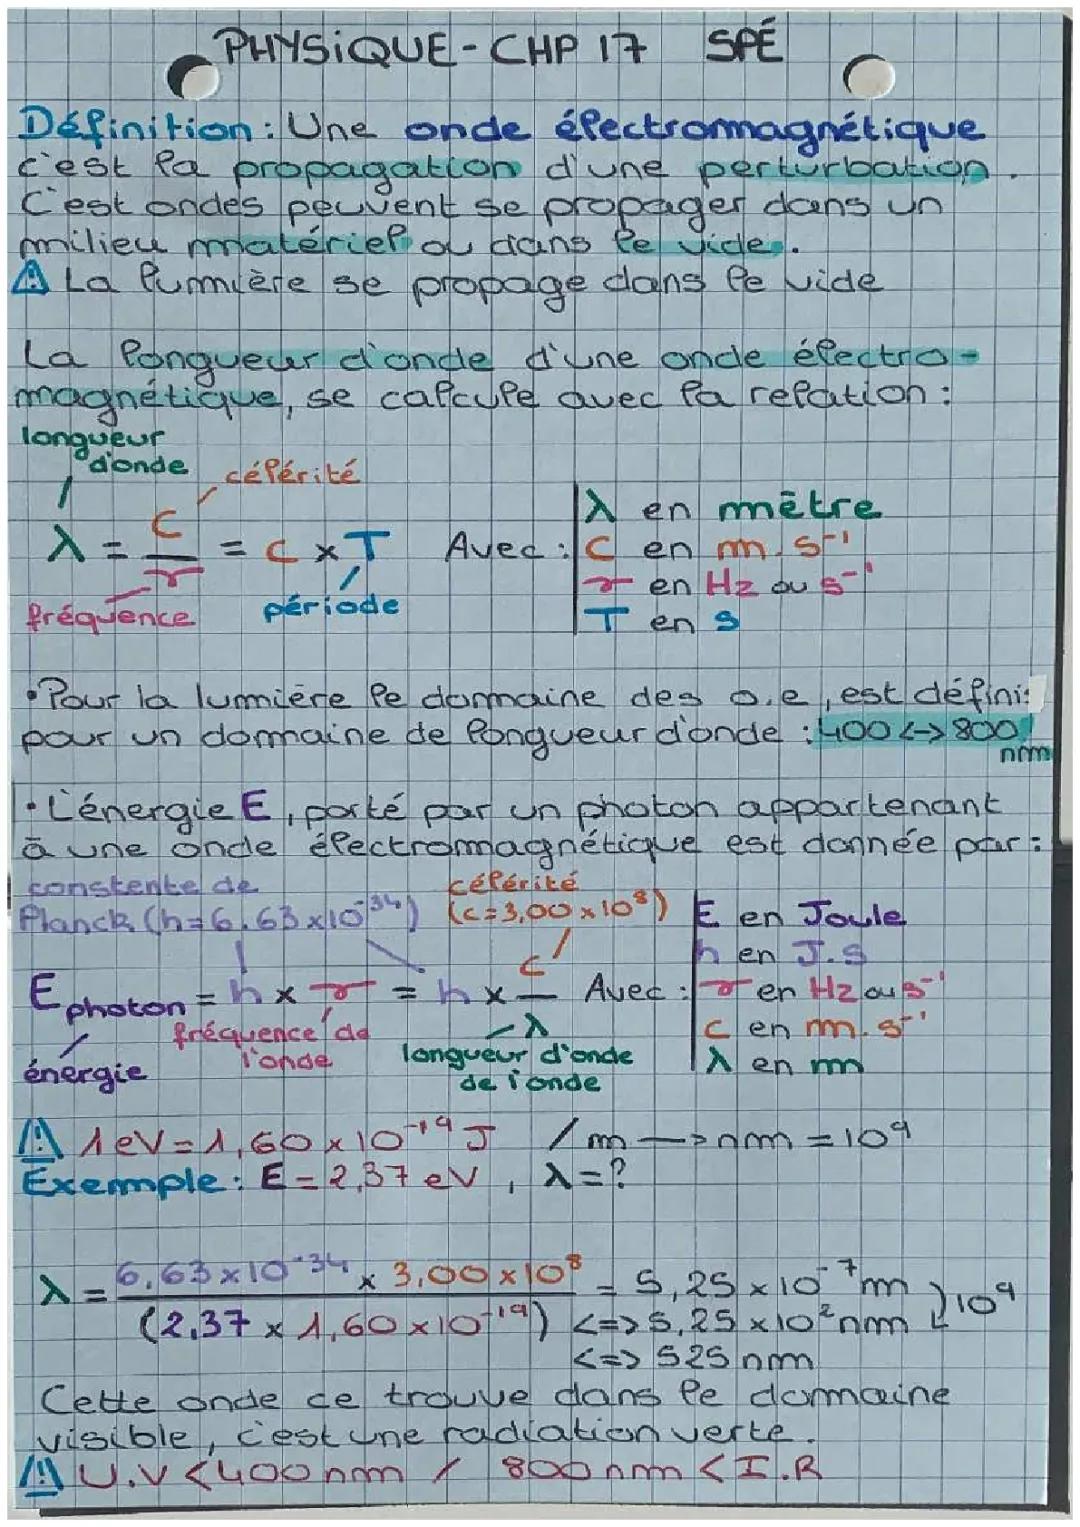 PHYSIQUE - CHP 17 SPÉ
Définition : Une onde électromagnétique
c'est la propagation d'une perturbation.
C'est ondes peuvent se propager dans un
milieu matériel ou dans le vide.
⚠ La lumière se propage dans le vide
La longueur d'onde d'une onde électro-
magnétique, se calcule avec la relation :
longueur
d'onde
célérité
λ = c/ν = c × T Avec : λ en mètre
c en m.s⁻¹
ν en Hz ou s⁻¹
T en s
fréquence
période
• Pour la lumière le domaine des o.e, est définis
pour un domaine de longueur d'onde : 400 <-> 800
nm
• L'énergie E, porté par un photon appartenant
à une onde électromagnétique est donnée par :
constente de
Planck (h=6,63×10⁻³⁴)
célérité
(c=3,00×10⁸)
E photon = h × ν = h × c/λ Avec : E en Joule
h en J.s
ν en Hz ou s⁻¹
c en m.s⁻¹
λ en m
énergie
fréquence de
l'onde
longueur d'onde
de l'onde
⚠ 1eV = 1,60×10⁻¹⁹ J / m —> nm = 10⁹
Exemple : E = 2,37 eV, λ = ?
λ = 6,63×10⁻³⁴ × 3,00×10⁸ / (2,37 × 1,60×10⁻¹⁹) = 5,25 × 10⁻⁷ m
<=> 5,25 ×10² nm
10⁹
<=> 525 nm
Cette onde ce trouve dans le domaine
visible, c'est une radiation verte.
⚠ U.V < 400 nm / 800 nm < I.R